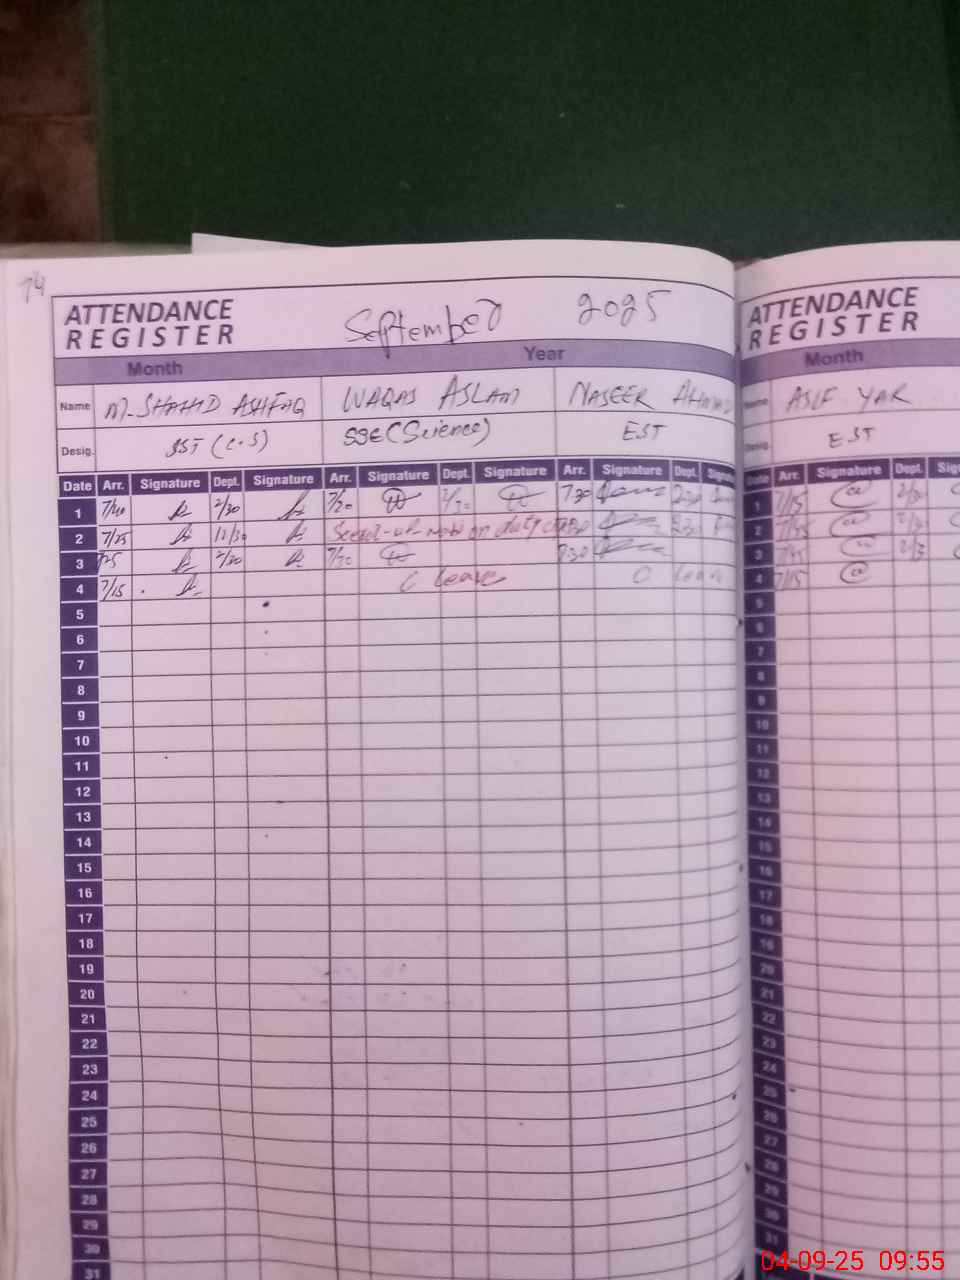 74
ATTENDANCE REGISTER September 2025
Month Year
Name M. SHAHID ASHFAQ WAQAS ASLAM NASEER AHMAD
Desig. SST (C.S) SSE (Science) EST
Date Arr. Signature Dept. Signature Arr. Signature Dept. Signature Arr. Signature Dept. Signature
1 7/40 2/30 7/30 2/30 7:30 2:30
2 7/25 11/30 on duty 2:30
3 7/30 7:30
4 7/15 C leave C leave
5
6
7
8
9
10
11
12
13
14
15
16
17
18
19
20
21
22
23
24
25
26
27
28
29
30
31
ATTENDANCE REGISTER
Month
Name ASIF YAR
Desig. EST
Date Arr. Signature Dept.
1 7/15 2/30
2
3
4 7/15
5
6
7
8
9
10
11
12
13
14
15
16
17
18
19
20
21
22
23
24
25
26
27
28
29
30
31
04-09-25 09:55